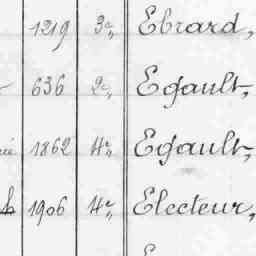 1219 3e, Ebrard,
636 2e, Egault,
1862 4e, Egault,
1906 4e, Electeur,